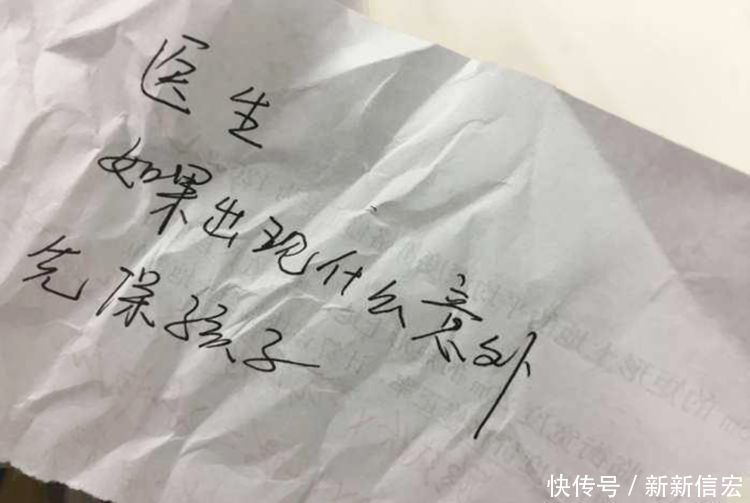 医生
如果出现什么意外
先保孩子
快传号 / 新新信宏